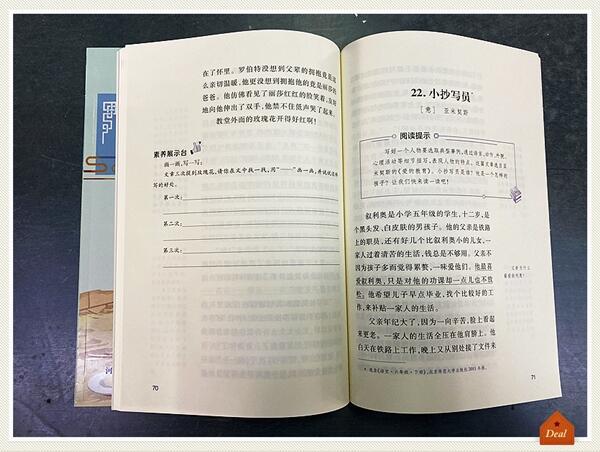 在了怀里。罗伯特没想到父辈的拥抱竟是这
么亲切温暖,他更没想到拥抱他的竟是丽莎的
爸爸。他仿佛看见了丽莎红红的脸笑着,友好
地向他伸出了双手,他禁不住低声哭了起来。
教堂外面的玫瑰花开得好红啊!
素养展示台
画一画,写一写。
文章三次提到玫瑰花,请你在文中找一找,用“——”画一画,并说说这样
写的好处。
第一次:
第二次:
第三次:
70
22. 小抄写员*
[意] 亚米契斯
阅读提示
写好一个人物要选取典型事例,通过语言、动作、外貌、
心理活动等细节描写,表现人物的特点。这篇文章选自亚
米契斯的《爱的教育》。小抄写员是谁?他是一个怎样的
孩子?让我们快来读一读吧!
叙利奥是小学五年级的学生,十二岁,是
个黑头发、白皮肤的男孩子。他的父亲是铁路
上的职员,还有好几个比叙利奥小的儿女,一
家人过着清苦的生活,钱总是不够用。父亲不
因为孩子多而觉得累赘,一味爱他们。他最喜
爱叙利奥,只是对他的功课却一点儿也不放
松。他希望儿子早点毕业,找个比较好的工
作,来补贴一家人的生活。
父亲年纪大了,因为一向辛苦,脸上看起
来更老。一家人的生活全压在他肩膀上。他
白天在铁路上工作,晚上又从别处接了文件来
71
河
Deal